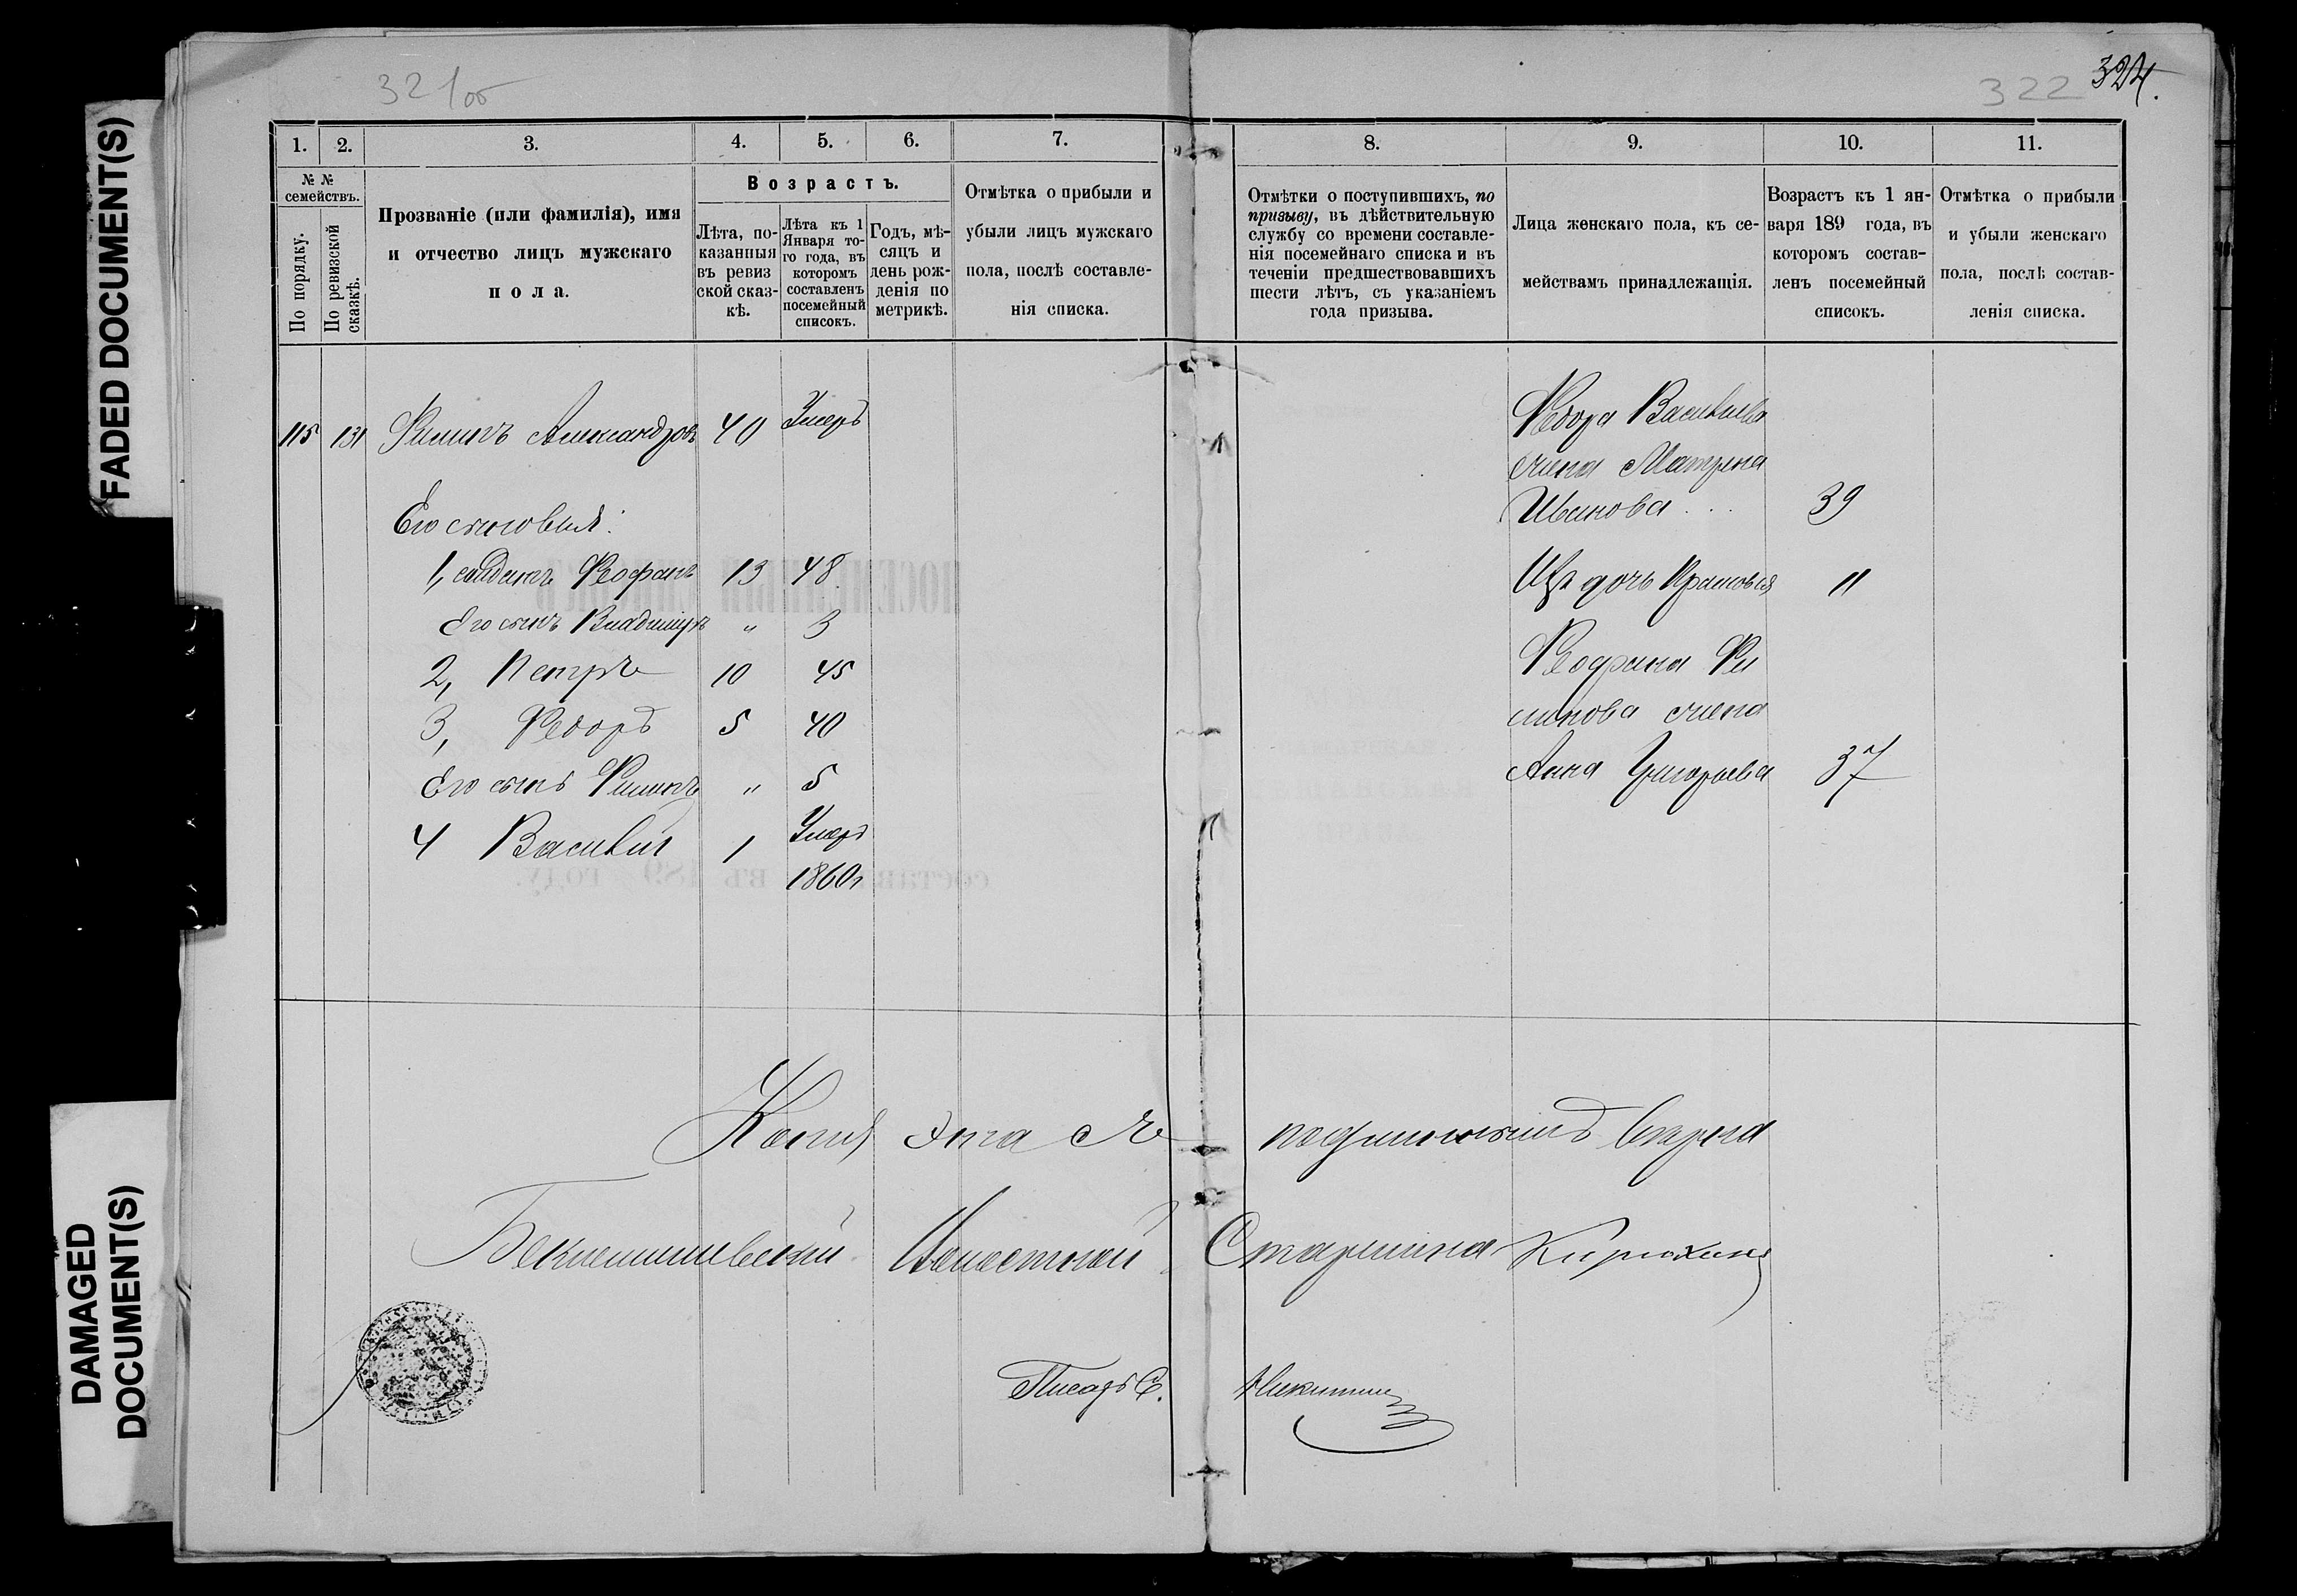 FADED DOCUMENT(S)
DAMAGED
DOCUMENT(S)
321об
322 324.
1. 2. 3. 4. 5. 6. 7.
№ №
семействъ.
По порядку.
По ревизской
сказкѣ.
Прозваніе (или фамилія), имя
и отчество лицъ мужскаго
пола.
Возрастъ.
Лѣта, по-
казанныя
въ ревиз
ской сказ-
кѣ.
Лѣта къ 1
Января то-
го года, въ
которомъ
составленъ
посемейный
списокъ.
Годъ, мѣ-
сяцъ и
день рож-
денія по
метрикѣ.
Отмѣтка о прибыли и
убыли лицъ мужскаго
пола, послѣ составле-
нія списка.
8. 9. 10. 11.
Отмѣтки о поступившихъ, по
призыву, въ дѣйствительную
службу со времени составле-
нія посемейнаго списка и въ
теченіи предшествовавшихъ
шести лѣтъ, съ указаніемъ
года призыва.
Лица женскаго пола, къ се-
мействамъ принадлежащія.
Возрастъ къ 1 ян-
варя 189 года, въ
которомъ состав-
ленъ посемейный
списокъ.
Отмѣтка о прибыли
и убыли женскаго
пола, послѣ состав-
ленія списка.
115 131 Филипъ Александровъ 40 Умеръ
Его сыновья:
1, солдатъ Феофанъ 13 48
Его сынъ Владимиръ " 3
2, Петръ 10 45
3, Федоръ 5 40
Его сынъ Филипъ " 5
4 Василий 1 Умеръ
1860г
Федора
жена Матрена
Иванова . . . 39
дочь Прасковья 11
жена
Анна Григорьева 37
Копия эта съ подлиннымъ верна
Бекетовский Волостной Старшина Кирюхинъ
Писарь С. Никитинъ